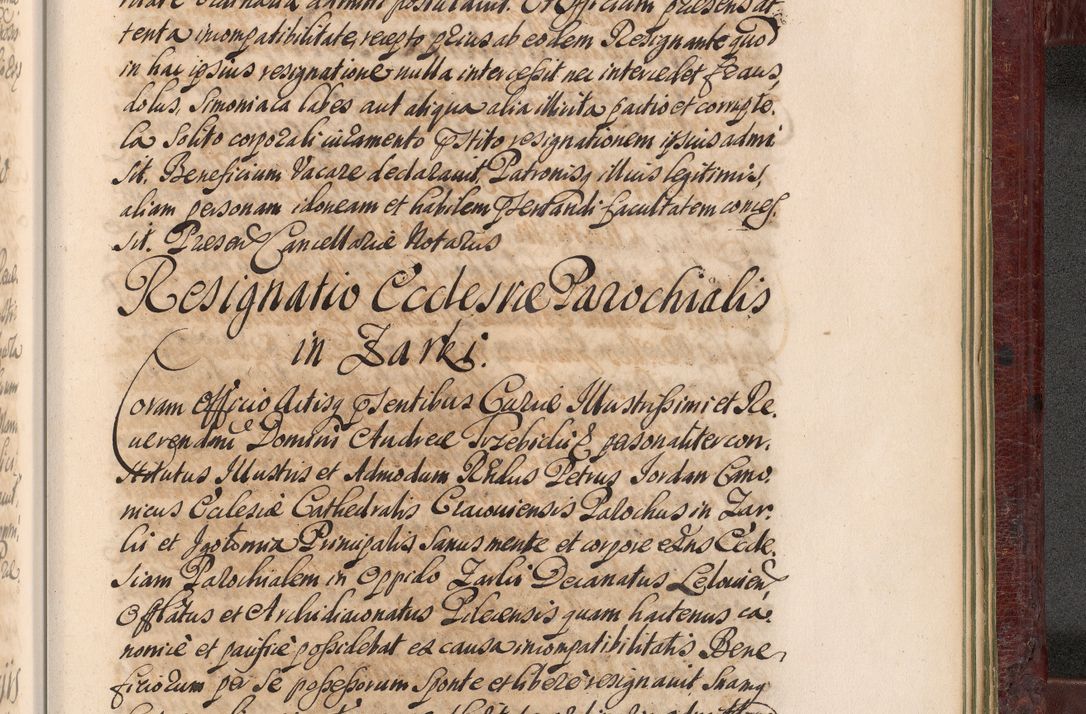 tenta incompatibilitate, recepto prius ab eodem Resignante quod
in hac ipsius resignatione nulla intercessit nec intercedet fraus,
dolus, Simoniaca labes aut aliqua alia illicita pactio et corrupte.
la Solito corporali iuramento pstito resignationem ipsius admi
sit. Beneficium Vacare declaravit, Patronisq illius legitimis,
aliam personam idoneam et habilem psentandi facultatem conces,
sit. Presen Cancellariæ Notarius
Resignatio Ecclesiæ Parochialis
in Zarki.
Coram Officio Actisq psentibus Curiæ Illustrissimi et Re,
uerendmi Domini Andreæ Trzebicki & personaliter con,
stitutus Illustus et Admodum Rndus Petrus Jordan Cano,
nicus Ecclesiæ Cathedralis Cracouiensis Parochus in Zar,
kii et Jgołomia Principalis Sanus mente et corpore exns Eccle,
siam Parochialem in Oppido Zarki Decanatus Lelouien
Offlatus et Archidiaconatus Pilecensis quam hactenus ca,
nonicè et pacificè possidebat ex causa incompatibilitatis Bene
ficiorum per se possessorum Sponte et liberè resignauit Inamq